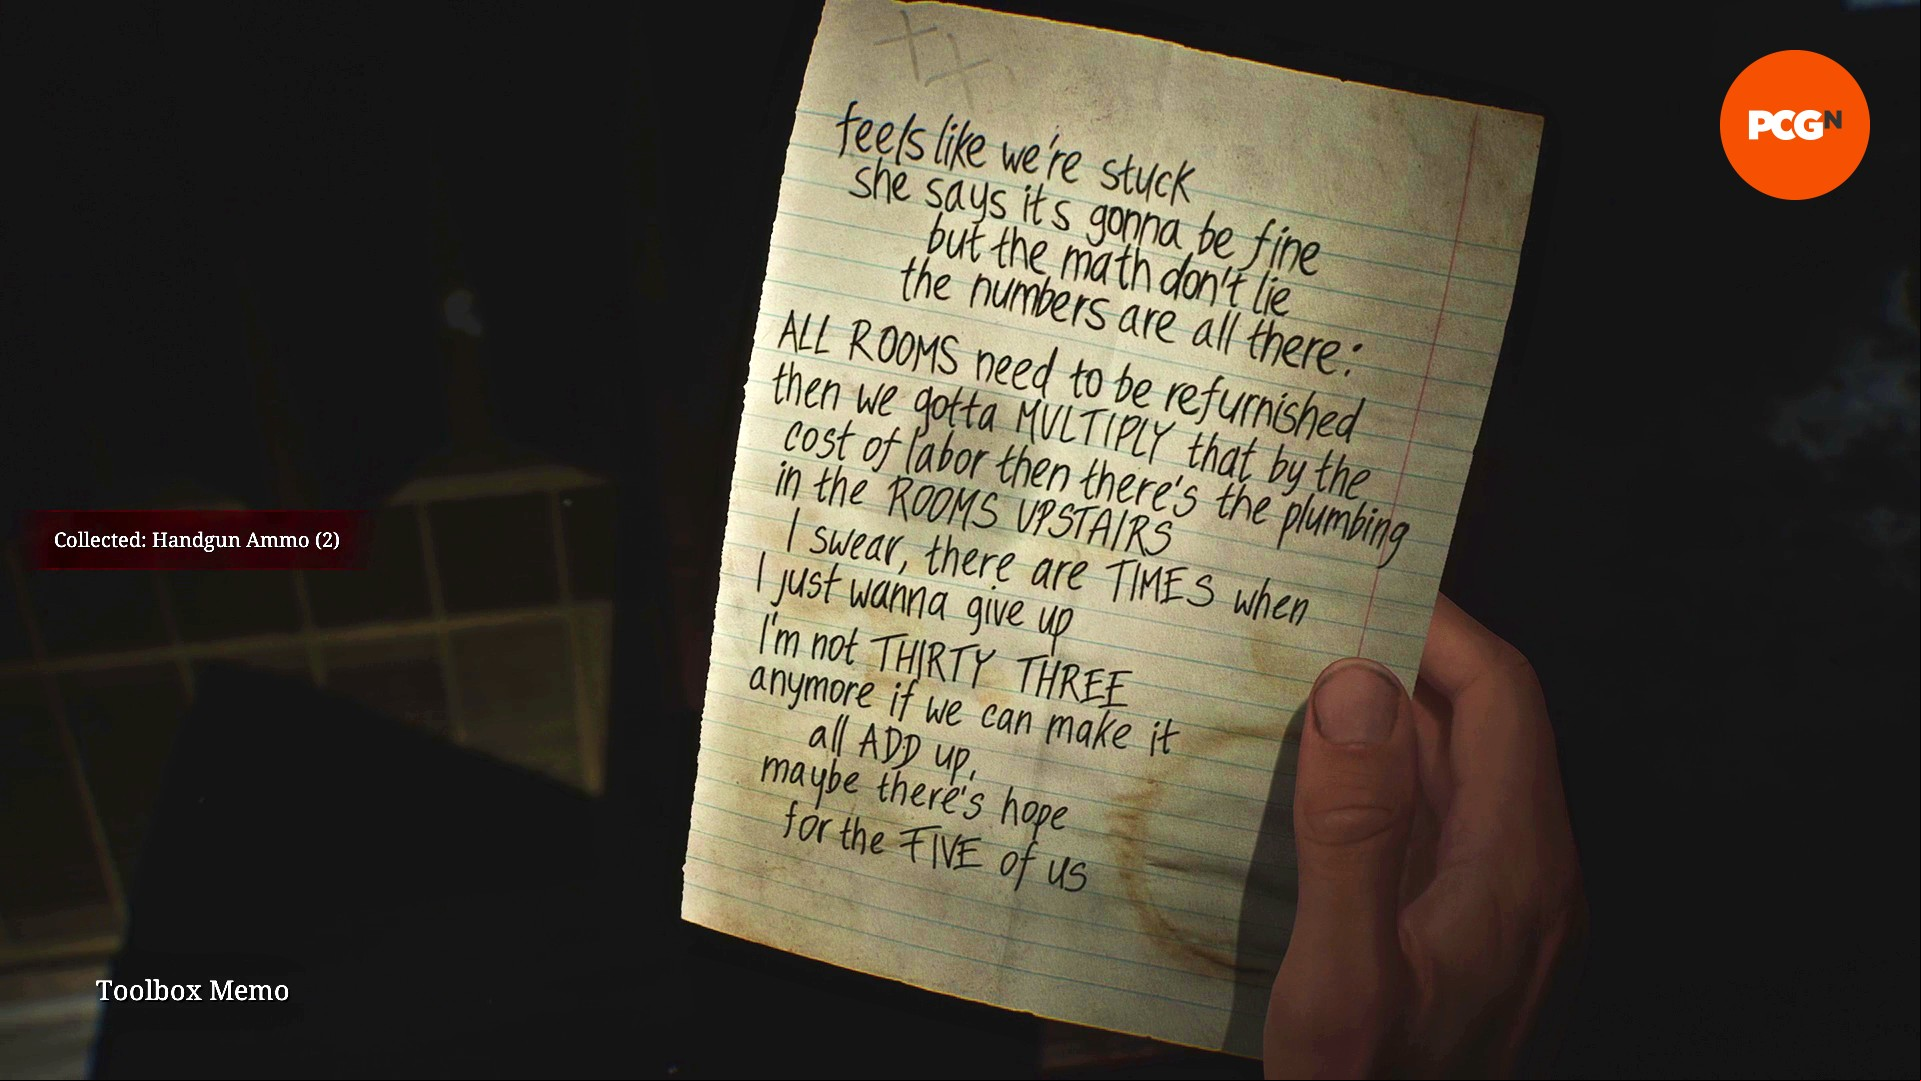 feels like we're stuck
she says it's gonna be fine
but the math don't lie
the numbers are all there:
ALL ROOMS need to be refurnished
then we gotta MULTIPLY that by the
cost of labor then there's the plumbing
in the ROOMS UPSTAIRS
I swear, there are TIMES when
I just wanna give up
I'm not THIRTY THREE
anymore if we can make it
all ADD up,
maybe there's hope
for the FIVE of us
PCGN
Collected: Handgun Ammo (2)
Toolbox Memo